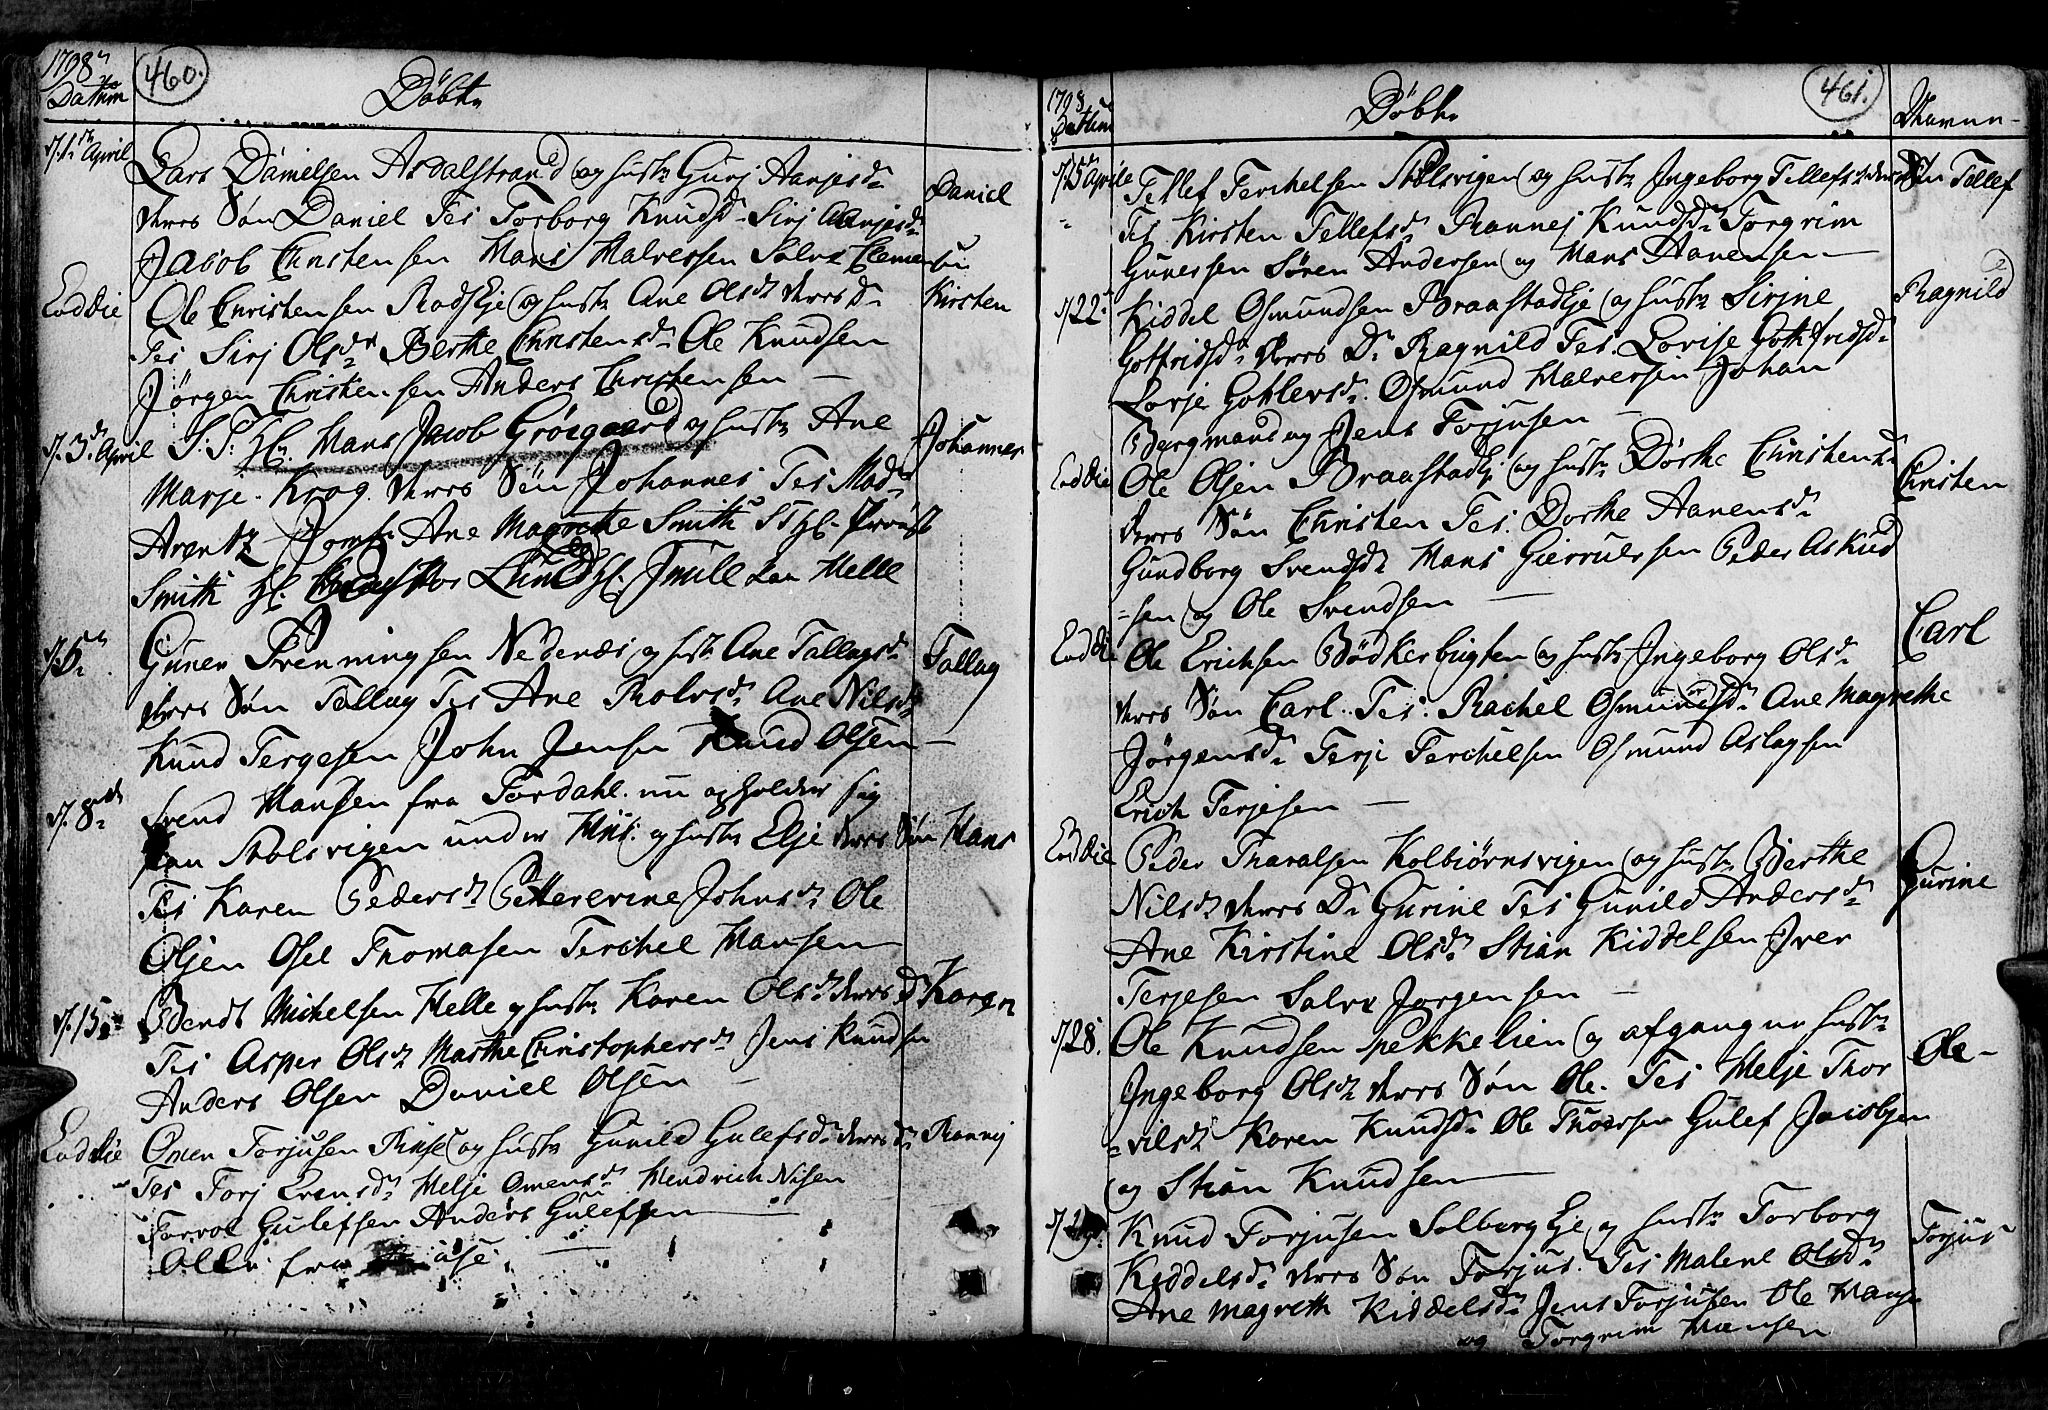 1798
460.
Datum
Döbte
d. 1ste April
Lars Danielsen Asdalstrand og hustr Gurj Aanjesd.
deres Søn Daniel Tes Torborg Knudsd. Sirj Aanjesd.
Daniel
Jacob Christensen Hans Halversen Salve Clemensen
Eod die
Ole Christensen RodsEje og hustr Ane Olsd. deres D.
Kirsten
Tes Sirj Olsd. Berthe Christensd. Ole Knudsen
Jörgen Christensen Anders Christensen
d. 3d. April
S. T. Hr. Hans Jacob Grösgaard og hustr Ane
Johannes
Marje Krog. deres Søn Johannes Tes Mad.
Arentz Jomfr Ane Magrethe Smith S T Hr. Provst
Smith Hr. Lund og Hr. Juell paa Helle
d. 6te
Guner Brenningsen Nedenæs og hustr Ane Tallagsd.
Tallag
deres Søn Tallag Tes Ane Rolvsd. Ane Nilsd.
Knud Tergesen John Jensen Knud Olsen
d. 8de
Svend Hansen fra Fordahl nu opholder sig
paa Stolsvigen under Hiis. og hustr Elje deres Søn Hans
Tes Karen Pedersd. Petterevine Johnsd. Ole
Olsen Osel Thomasen Terchel Hansen
d. 15de
Bendt Michelsen Helle og hustr Karen Olsd. deres D. Karen
Tes Asper Olsd. Marthe Christophersd. Jens Knudsen
Anders Olsen Daniel Olsen
Eod die
Omen Torjusen Rinje og hustr Gunild Gulefsd. deres D. Rannej
Tes Torj Evensd. Helje Omensd. Hendrich Nilsen
Torvol Gulefsen Anders Gulefsen
Olle fra aase
1798
Datum
Döbte
461.
Navnene
d. 15de Aprile
Tellef Terchelsen Stolsvigen og hustr Ingeborg Tellefsd. deres Søn Tellef
Tes Kirsten Tellefsd. Rannej Knudsd. Torgrim
Gunersen Sören Andersen og Hans Aanensen
d 22.
Kiddel Osmundsen BraastadEje og hustr Sirjne
Ragnild
Gotfridsd. deres D. Ragnild Tes. Lovise Gothfridsd.
Sorje Gotlevsd. Osmund Halversen Johan
Bergmand og Jens Torjusen
Eod die
Ole Olsen BraastadEj og hustr Dorthe Christensd.
Christen
deres Søn Christen Tes. Dorthe Aanensd.
Gundborg Svendsd. Hans Gierrulssen Peder Askild
=sen og Ole Svendsen
Eod die
Ole Erichsen Bödkerbugten og hustr Ingeborg Olsd.
Carl
deres Søn Carl. Tes. Rachel Osmundsd. Ane Magrethe
Jörgensd. Terje Terchelsen Osmund Aslagsen
Erich Terjesen
Eod die
Peder Tharalsen Kolbiörnsvigen og hustr Berthe
Gurine
Nilsd. deres D. Gurine Tes Gunild Andersd.
Ane Kirstine Olsd. Stian Kiddelsen Iver
Terjesen Salve Jörgensen
d 28.
Ole Knudsen Spekkelien og afgangne hustr
Ole
Ingeborg Olsd. deres Søn Ole. Tes Helje Thor
=vilsd. Karen Knudsd. Ole Thoersen Gulef Jacobsen
og Stian Knudsen
d 29.
Knud Torjusen Solborg Eje og hustr Torborg
Torjus
Kiddelsd. deres Søn Torjus. Tes Malene Olsd.
Ane Magreth Kiddelsd. Jens Torjusen Ole Hansen
og Torgrim Hansen